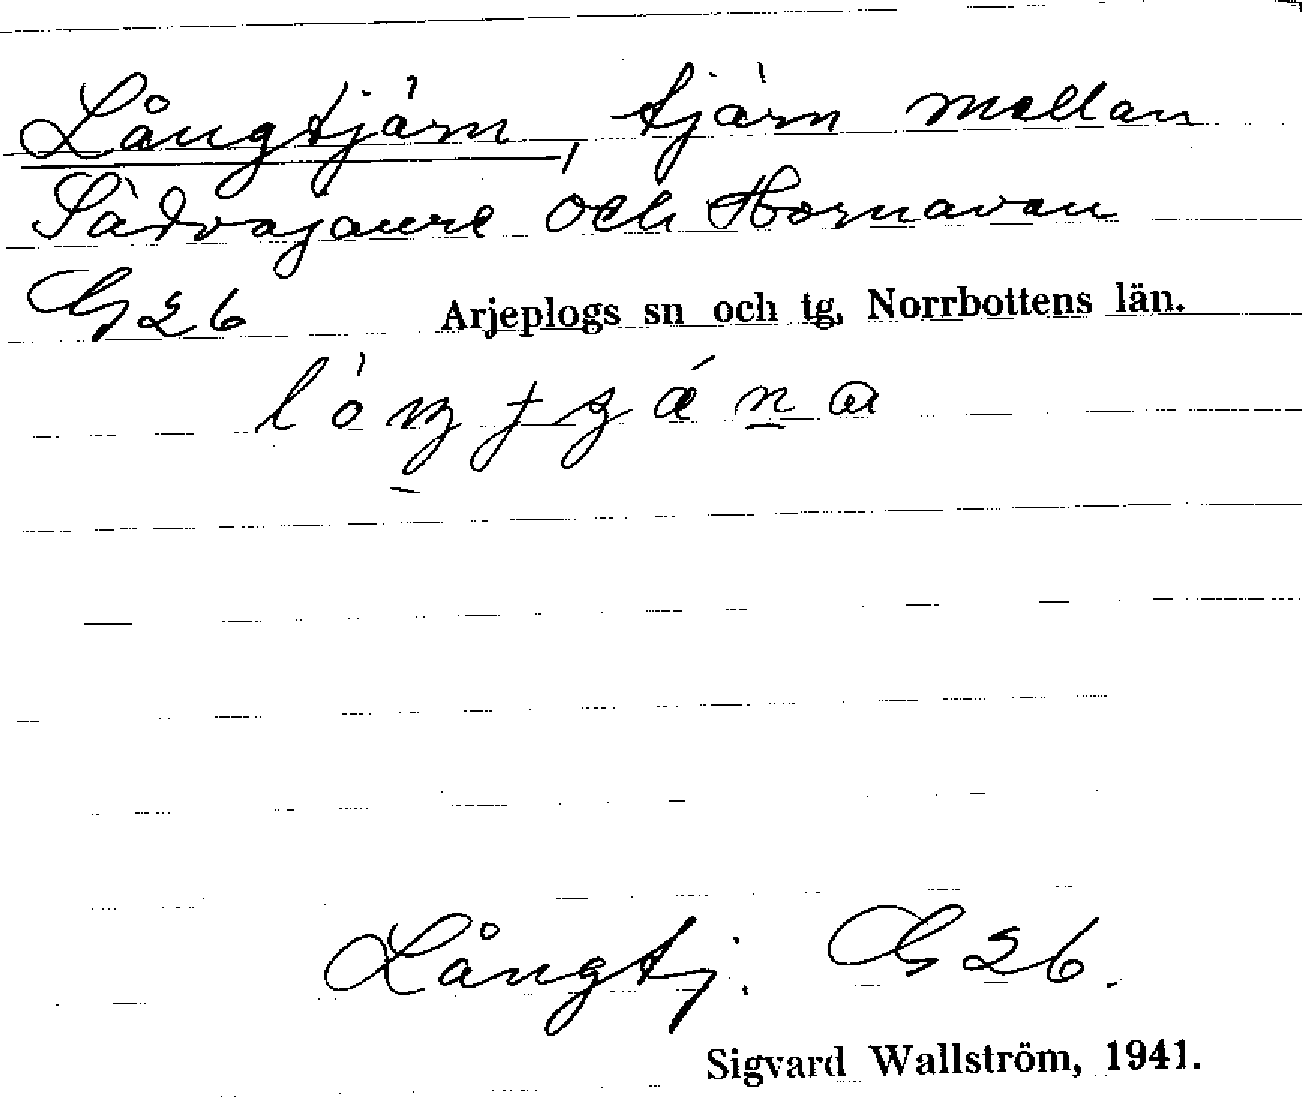 Långtjärn, tjärn mellan
Sädvajaure och Hornavan
G 26 Arjeplogs sn och tg, Norrbottens län.
Långtj. G 26.
Sigvard Wallström, 1941.